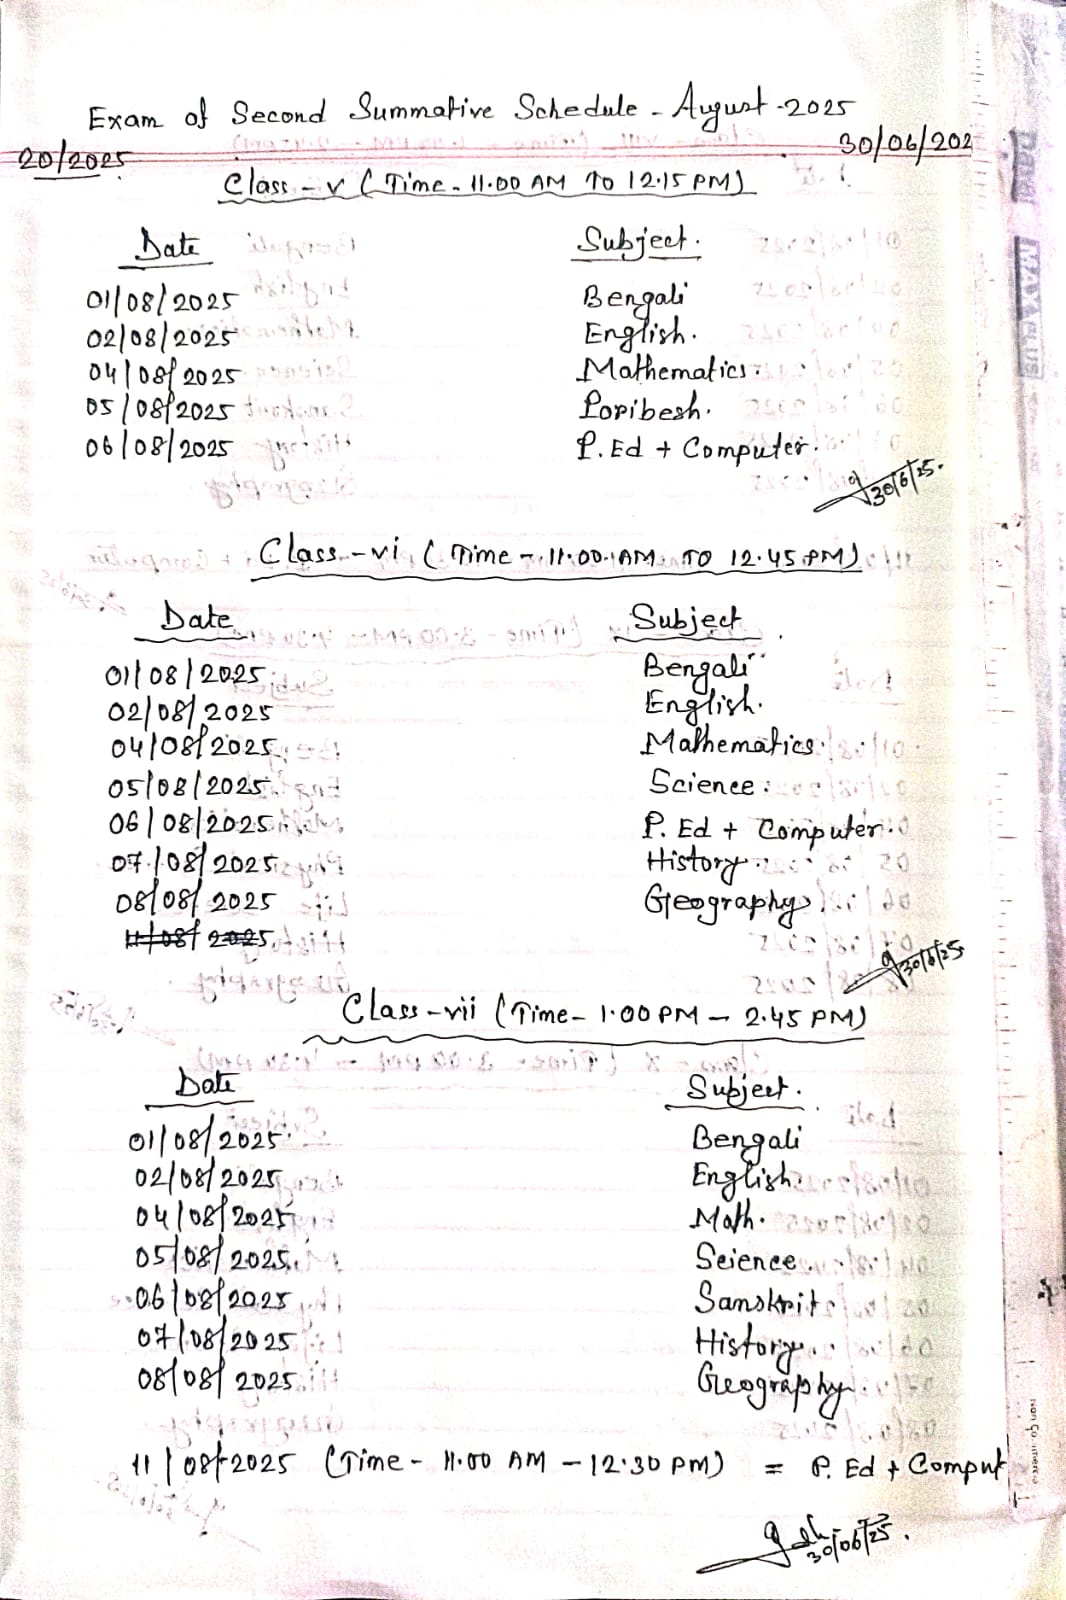 Exam of Second Summative Schedule - August - 2025
20/2025 30/06/202
Class - V (Time - 11.00 AM TO 12.15 PM)
Date Subject.
01/08/2025 Bengali
02/08/2025 English.
04/08/2025 Mathematics.
05/08/2025 Poribesh.
06/08/2025 P. Ed + Computer.
30/6/25.
Class - vi (Time - 11.00 AM TO 12.45 PM)
Date Subject
01/08/2025 Bengali
02/08/2025 English.
04/08/2025 Mathematics
05/08/2025 Science
06/08/2025 P. Ed + Computer.
07/08/2025 History
08/08/2025 Geography
11/08/2025
30/6/25
Class - vii (Time - 1.00 PM - 2.45 PM)
Date Subject.
01/08/2025 Bengali
02/08/2025 English.
04/08/2025 Math.
05/08/2025 Science
06/08/2025 Sanskrit
07/08/2025 History
08/08/2025 Geography
11/08/2025 (Time - 11.00 AM - 12.30 PM) = P. Ed + Comput
30/06/25.